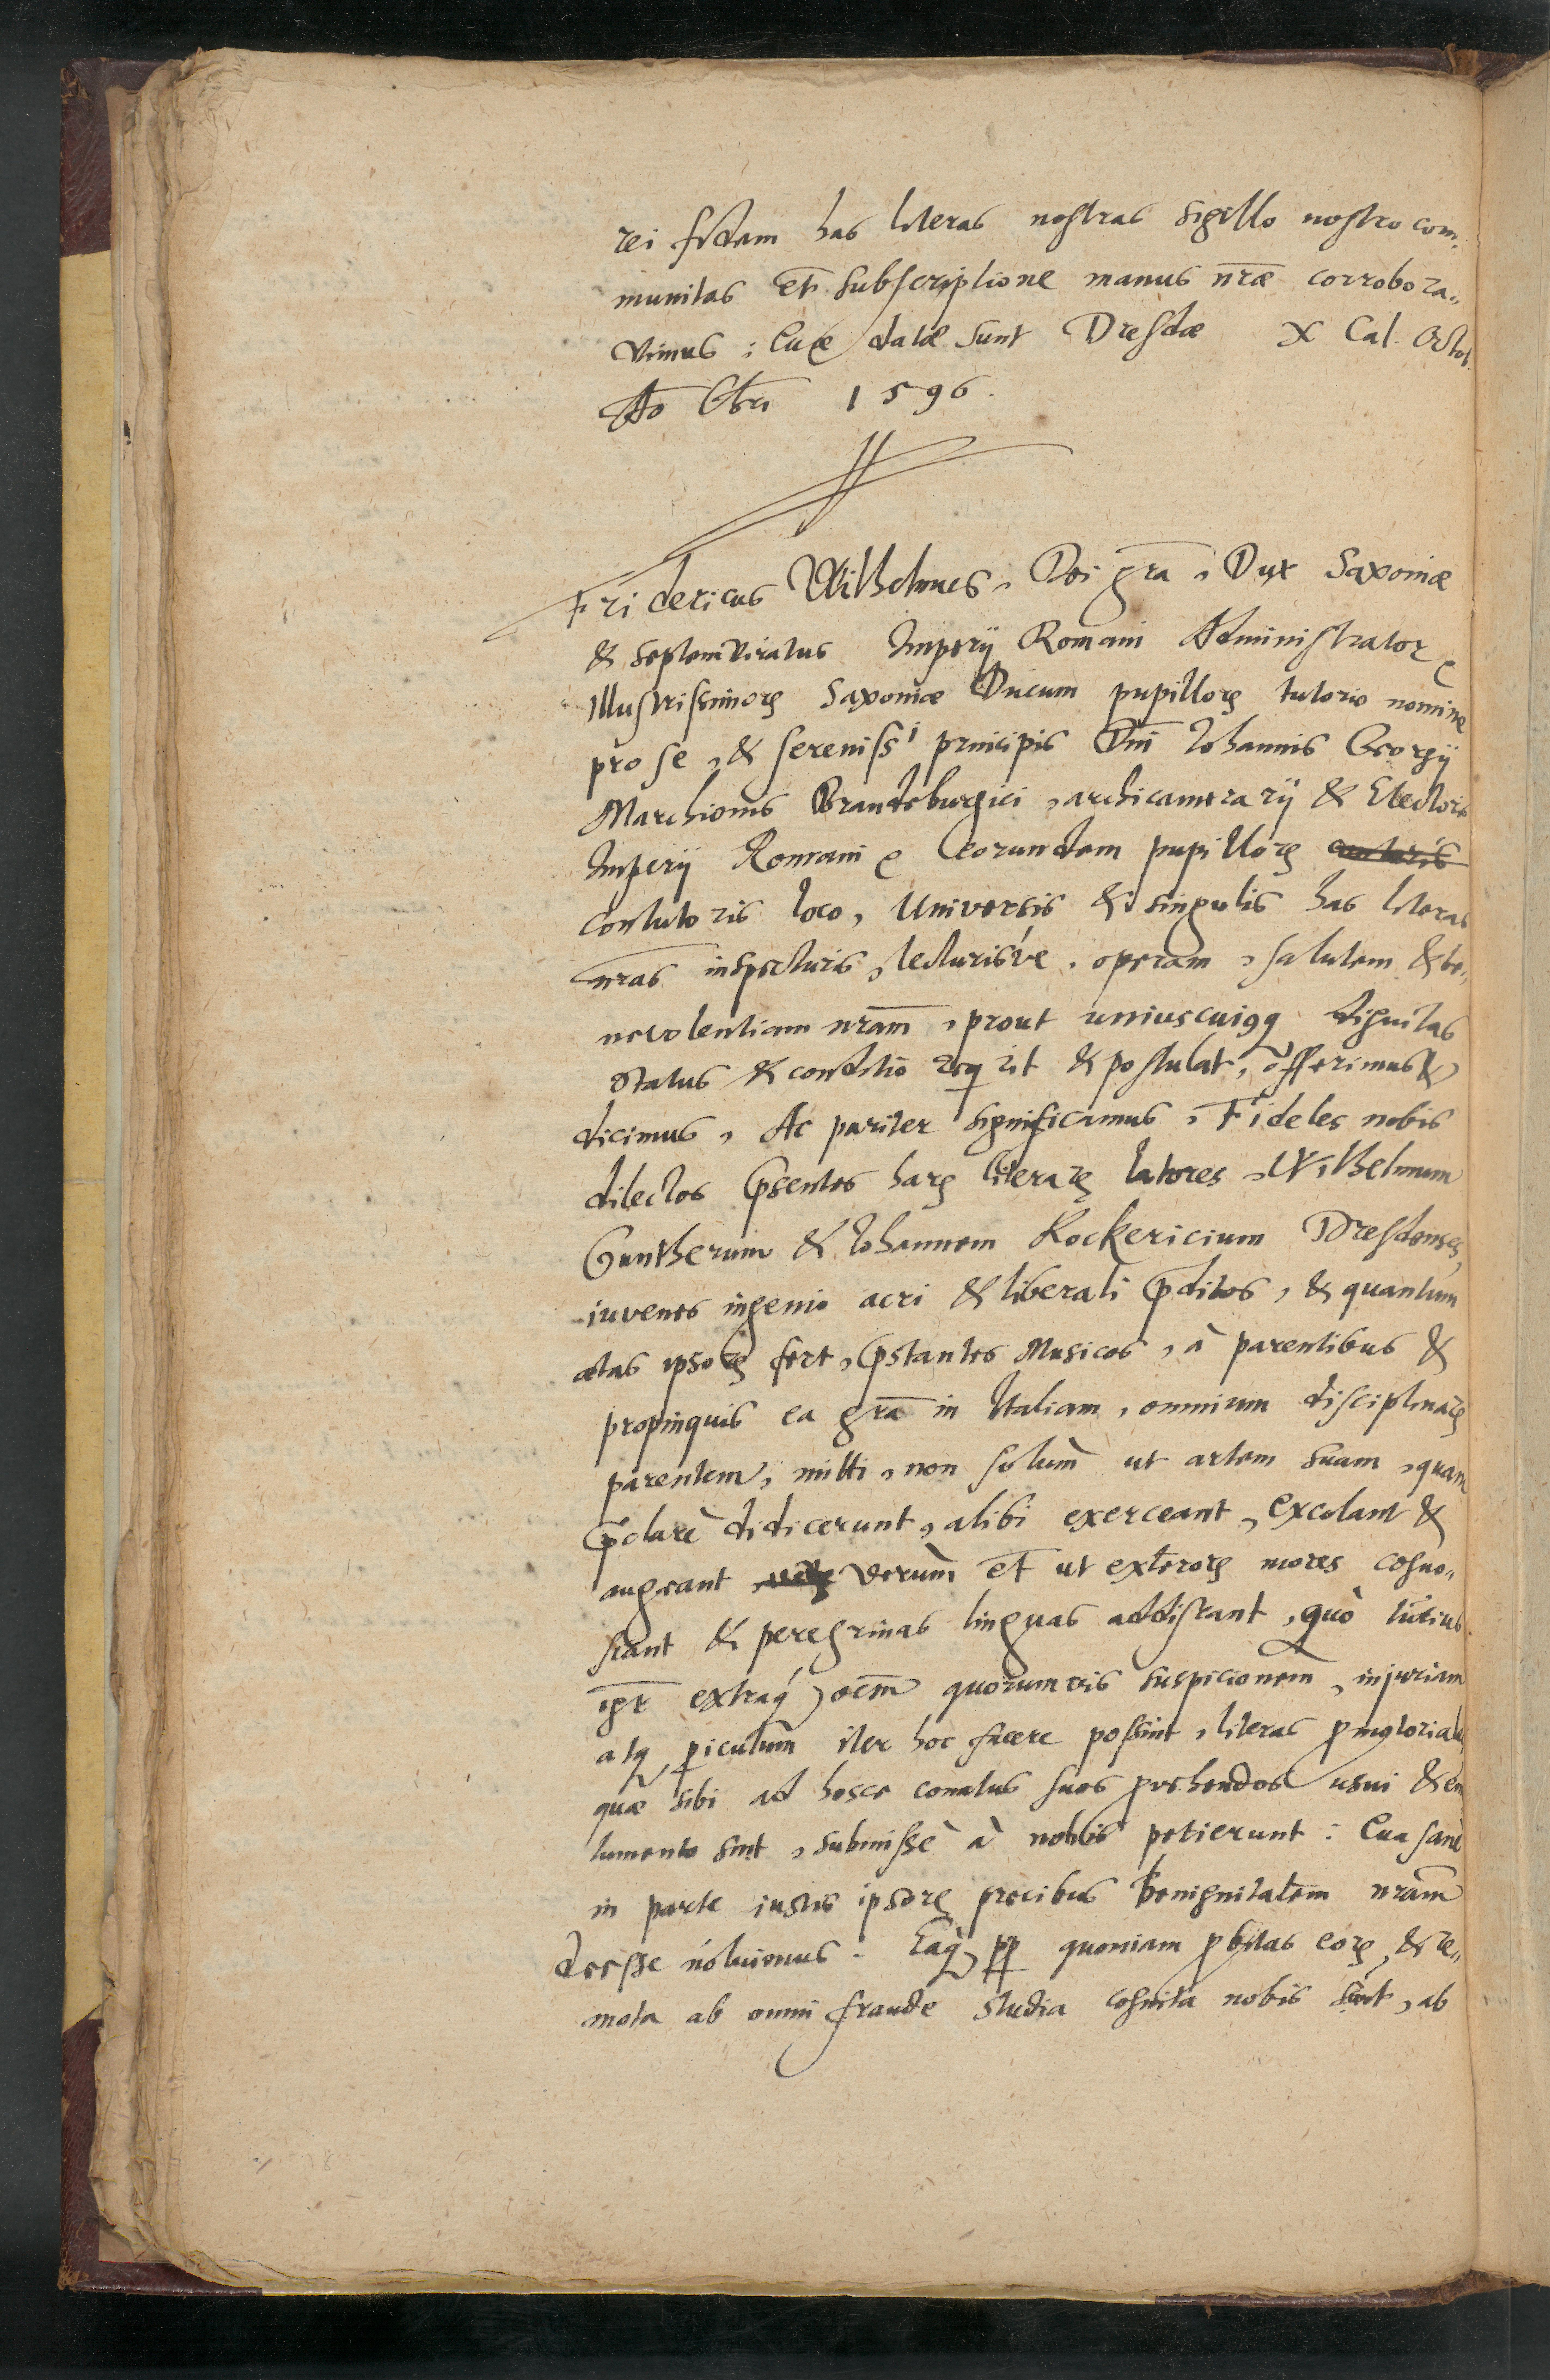 rei fidem has literas nostras sigillo nostro com-
munitas et subscriptione manus nrae corrobora-
vimus: Quae datae sunt Dresdae X Cal. Octob.
Ao Chri 1596.
Fridericus Wilhelmus, Dei gra, Dux Saxoniae
& septemviratus Imperij Romani Administrator
Illustrissimorꝝ Saxoniae Ducum pupillorꝝ tutorio nomine
pro se, & sereniss i principis Dni Iohannis Georgij
Marchionis Brandeburgici, archicamerarij & Electoris
Imperij Romani eorundem pupillorꝝ
contutoris loco, Universis & singulis has literas
nras inspecturis, lecturisve, operam, salutem & be-
nevolentiam nram, prout uniuscuiqq dignitas
status & conditio reqrit & postulat, offerimus &
dicimus, Ac pariter significamus, Fideles nobis
dilectos p̃sentes harꝝ literarꝝ latores, Wilhelmum
Guntherum & Iohannem Kockericium Dresdenses,
iuvenes ingenio acri & liberali p̃ditos, & quantum
aetas ipsorꝝ fert, p̃stantes Musicos, à parentibus &
propinquis ea gra in Italiam, omnium disciplinarꝝ
parentem, mitti, non solùm ut artem suam, quam
p̃clarè didicerunt, alibi exerceant, excolant &
augeant, verùm et ut exterorꝝ mores cogno-
scant & peregrinas linguas addiscant, quò tutius
igr extraq́ oem quorumvis suspicionem, injuriam
atq periculum iter hoc facere possint, literas
quae sibi ad hosce conatus suos provehendos usui & emo
lumento sint, submissè à nobis petierunt: Qua sanè
in parte iustis ipsorꝝ precibus benignitatem nram
deesse noluimus. Eaq́ pp quoniam probitas eorꝝ, & re-
mota ab omni fraude studia cognita nobis sint, ab